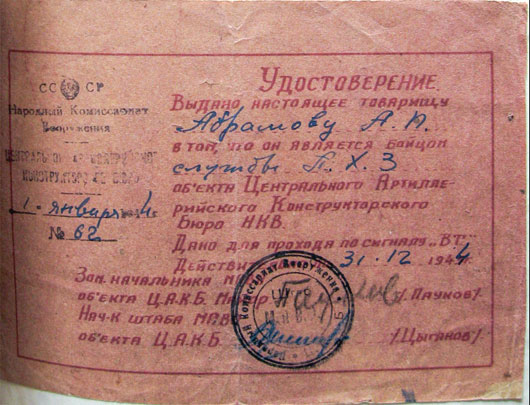 СССР
Народный Комиссариат
Вооружения
Центральное Артиллерийское
Конструкторское Бюро
1 января 1944
№ 62
Удостоверение
Выдано настоящее товарищу
Абрамову А. П.
в том, что он является бойцом
службы П. Х. З
объекта Центрального Артилле-
рийского Конструкторского
Бюро НКВ.
Дано для прохода по сигналу „ВТ"
Действит 31.12 1944
Зам. начальника МП
объекта Ц.А.К.Б. /Паунов/
Нач-к штаба МПВО
объекта Ц.А.К.Б. /Цыганов/
Народный Комиссариат Вооружения